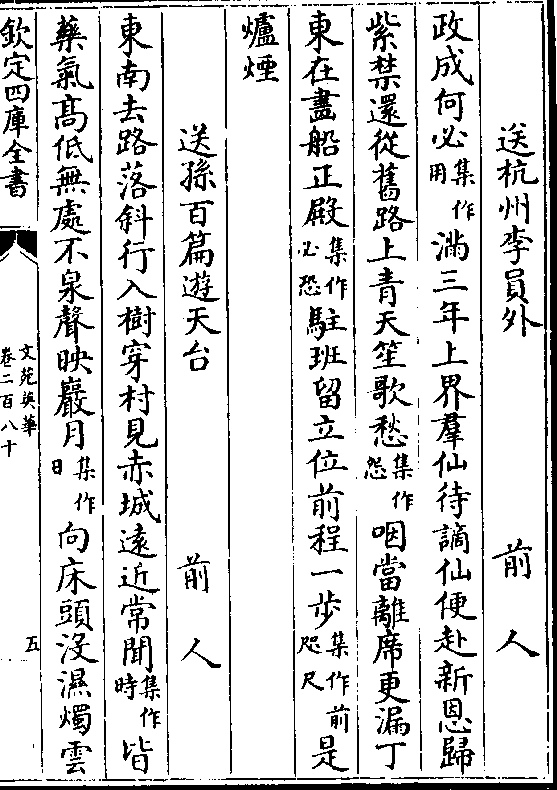 送杭州李員外　前人
政成何必集作用滿三年上界羣仙待謫仙便赴新恩歸
紫禁還從舊路上青天笙歌愁集作怨咽當離席更漏丁
東在畫船正殿集作必恐駐班留立位前程一步集作咫尺前是
爐煙
送孫百篇遊天台　前人
東南去路落斜行入樹穿村見赤城遠近常聞集作時皆
藥氣高低無處不泉聲映巖月集作日向床頭沒濕燭雲
欽定四庫全書
文苑英華
卷二百八十
五